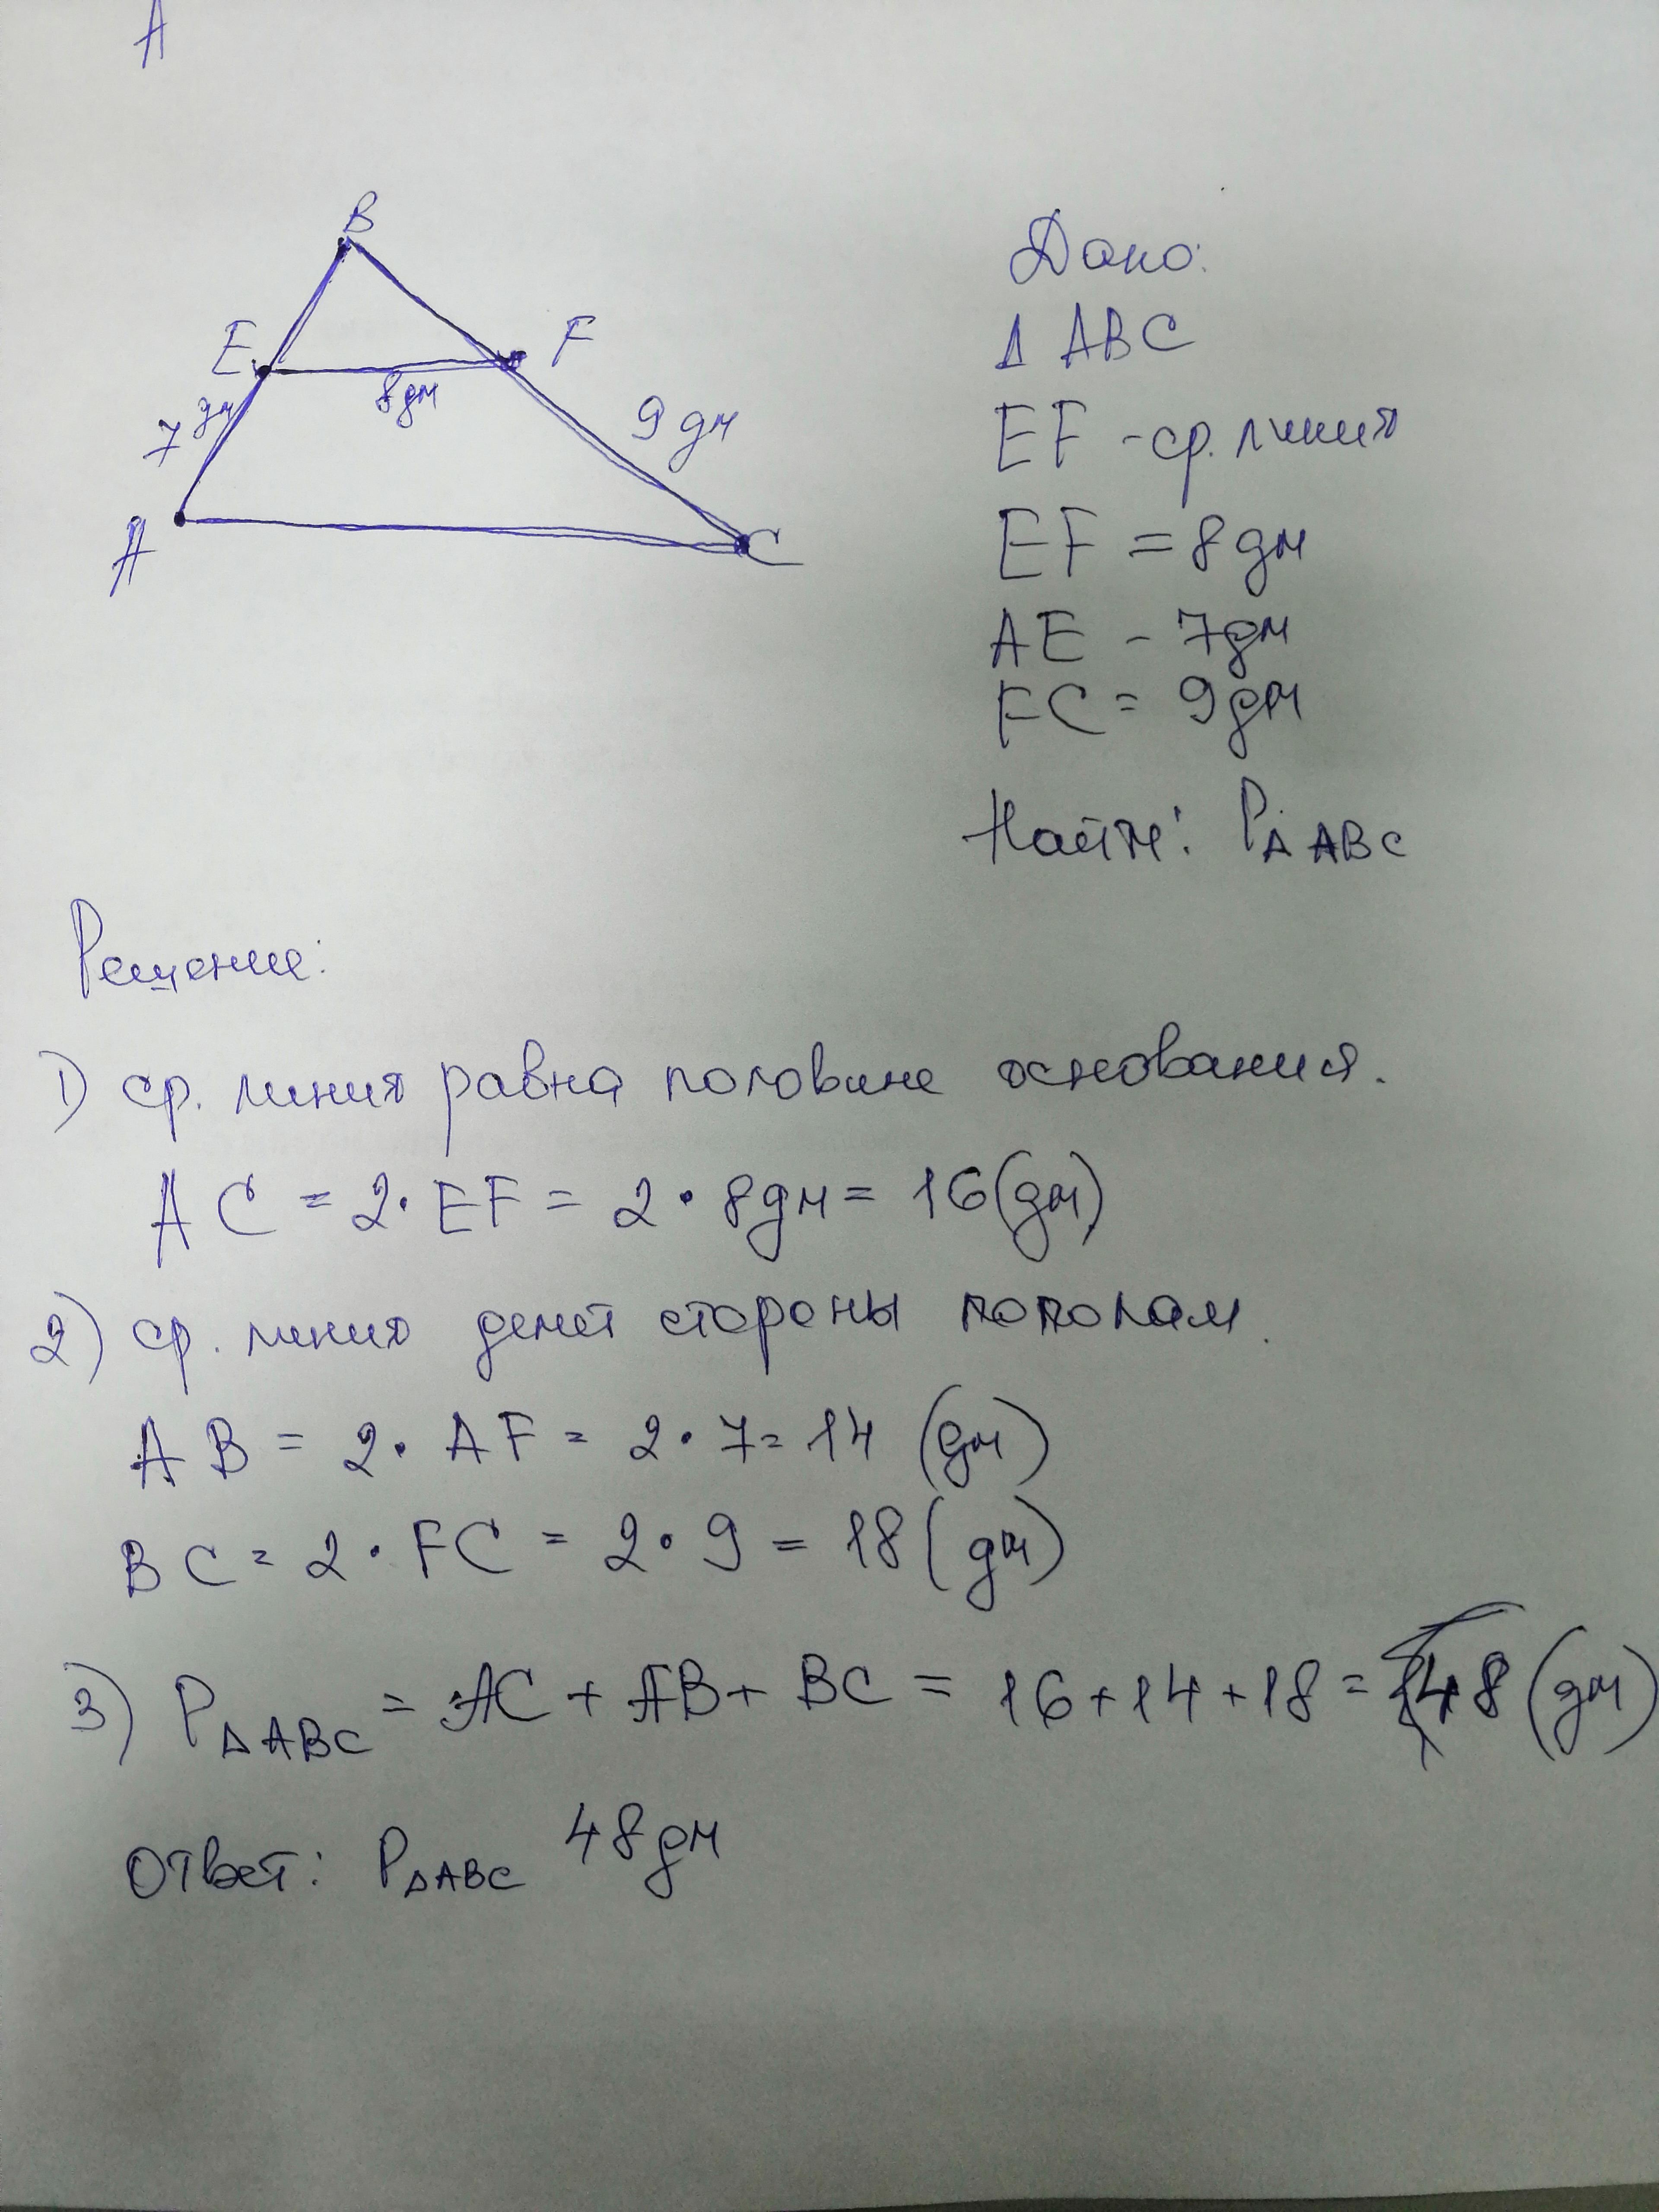 A
B
E
F
8дм
7 дм
9 дм
A
C
Дано:
Δ ABC
EF - ср. линия
EF = 8 дм
AE - 7дм
FC = 9дм
Найти: PΔ ABC
Решение:
1) ср. линия равна половине основания.
AC = 2 · EF = 2 · 8дм = 16 (дм)
2) ср. линия делит стороны пополам.
AB = 2 · AF = 2 · 7 = 14 (дм)
BC = 2 · FC = 2 · 9 = 18 (дм)
3) PΔABC = AC + AB + BC = 16 + 14 + 18 = 48 (дм)
Ответ: PΔABC 48дм